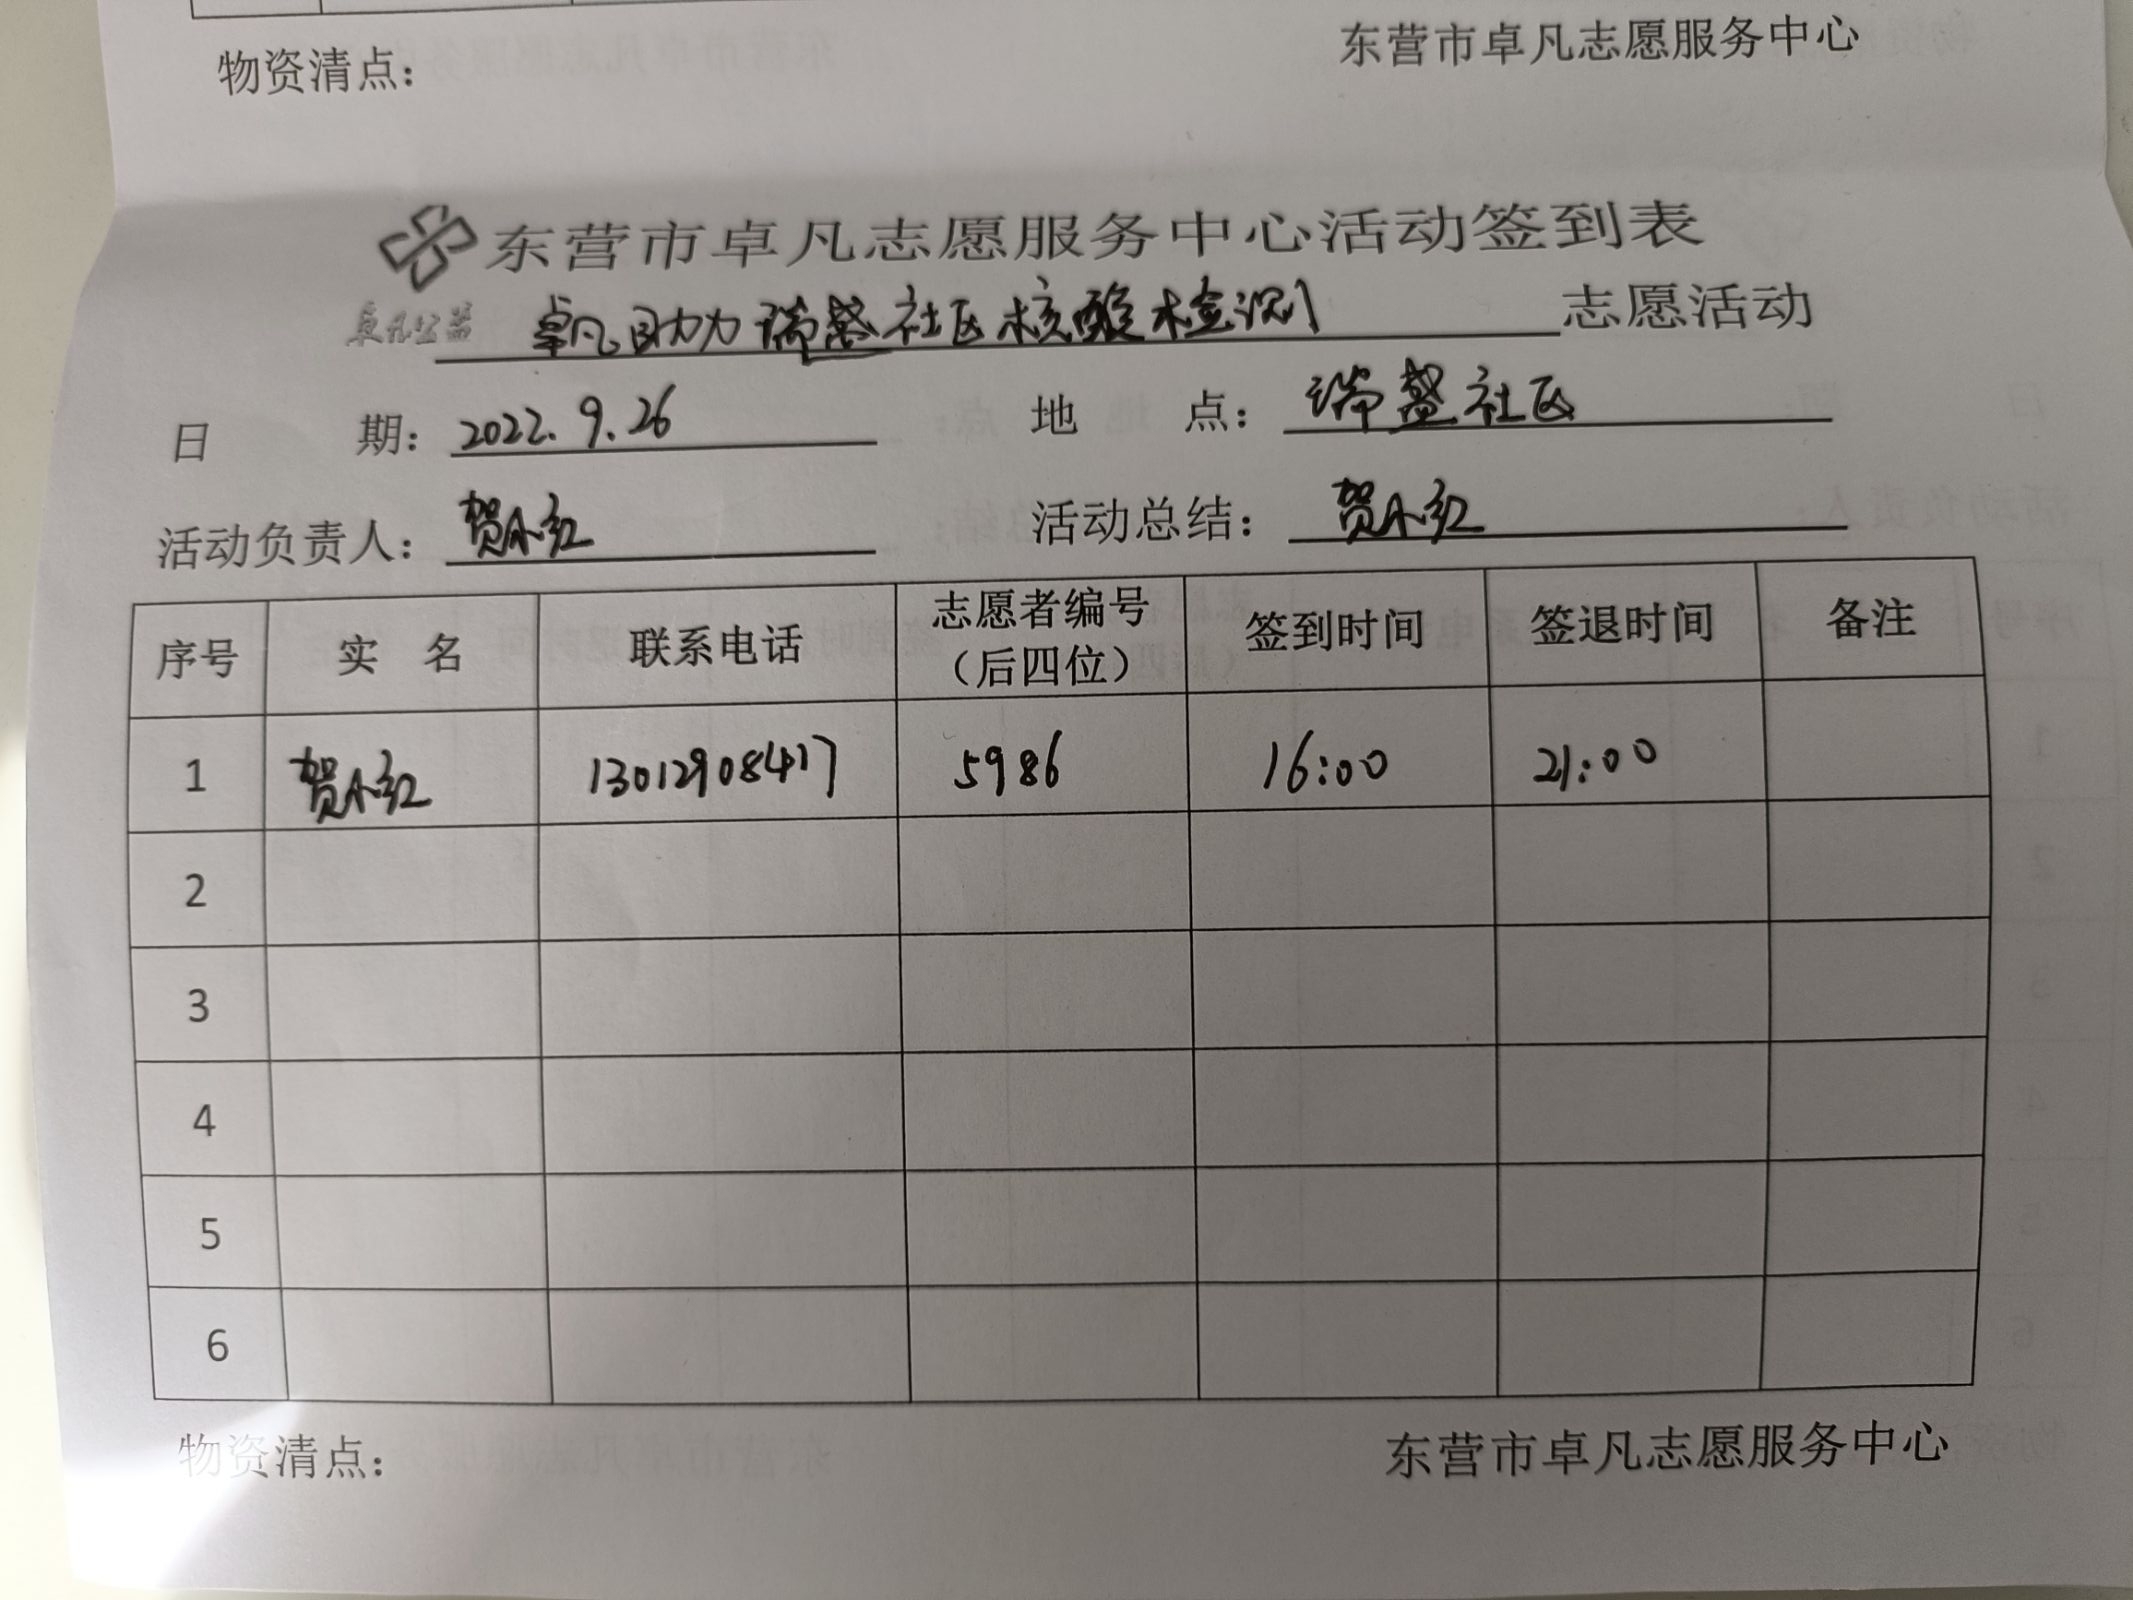 物资清点：
东营市卓凡志愿服务中心
东营市卓凡志愿服务中心活动签到表
卓凡公益 卓凡助力瑞盛社区核酸检测 志愿活动
日 期：2022.9.26 地 点：瑞盛社区
活动负责人：贺小红 活动总结：贺小红
序号 实 名 联系电话 志愿者编号（后四位） 签到时间 签退时间 备注
1 贺小红 13012908417 5986 16:00 21:00
2
3
4
5
6
物资清点：
东营市卓凡志愿服务中心